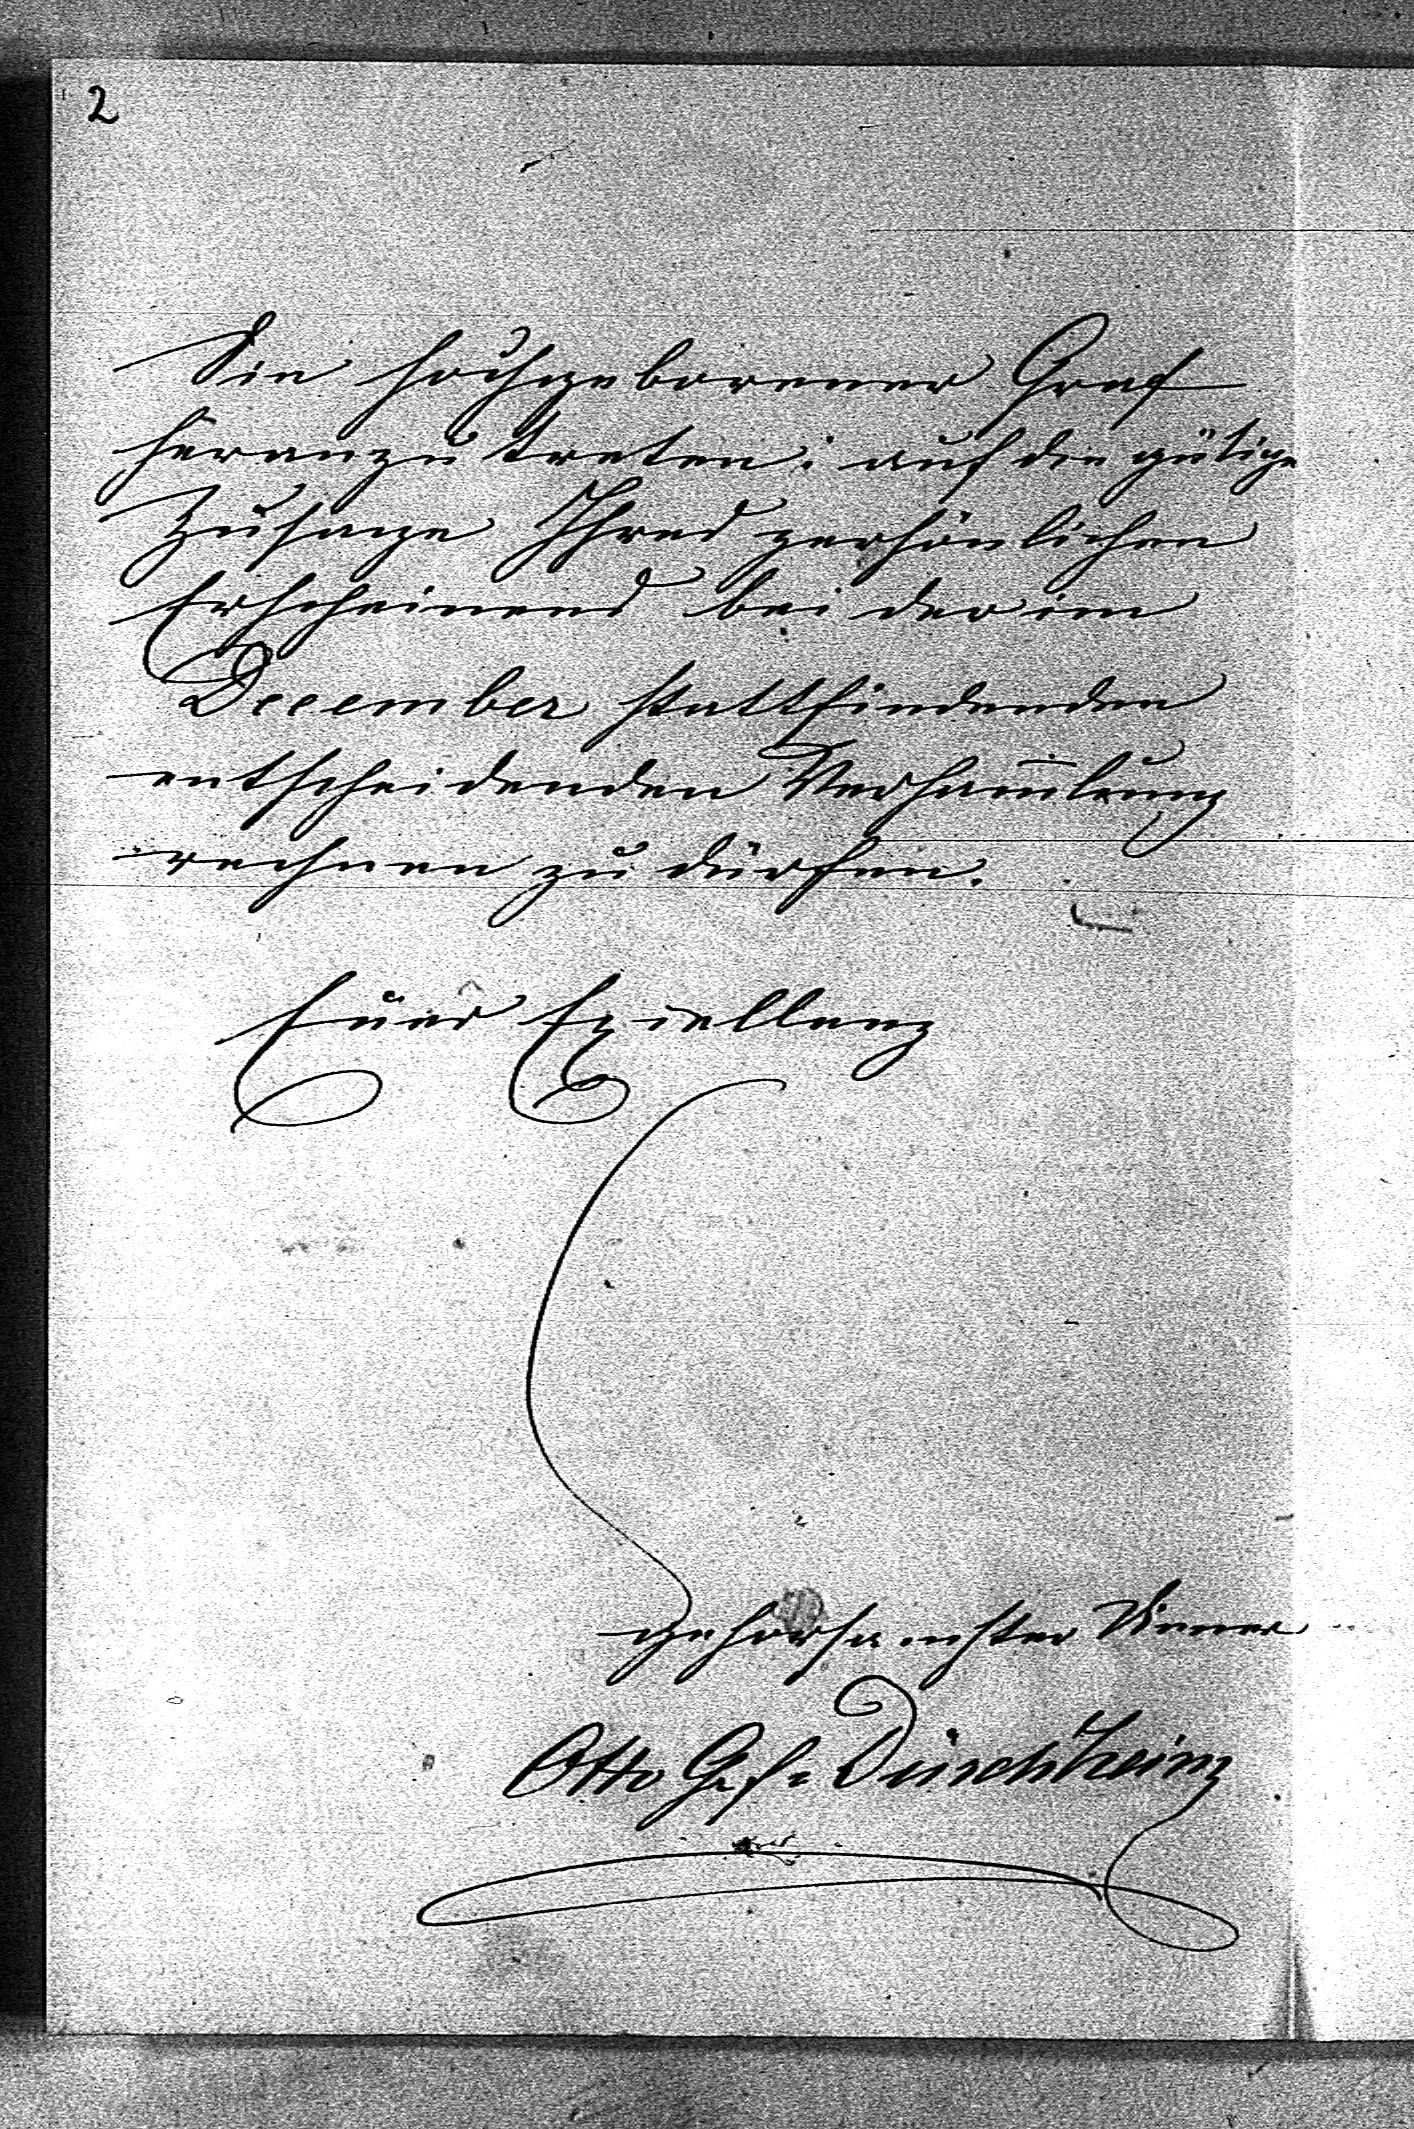 2
Sie hochgeborener Graf
heranzutreten: auf die gütige
Zusage Ihres persönlichen
Erscheinens bei der im
December stattfindenden
entscheidenden Versam̅lung
rechnen zu dürfen.
Euer Exzellenz
gehorsamster Diener
Otto Gf.